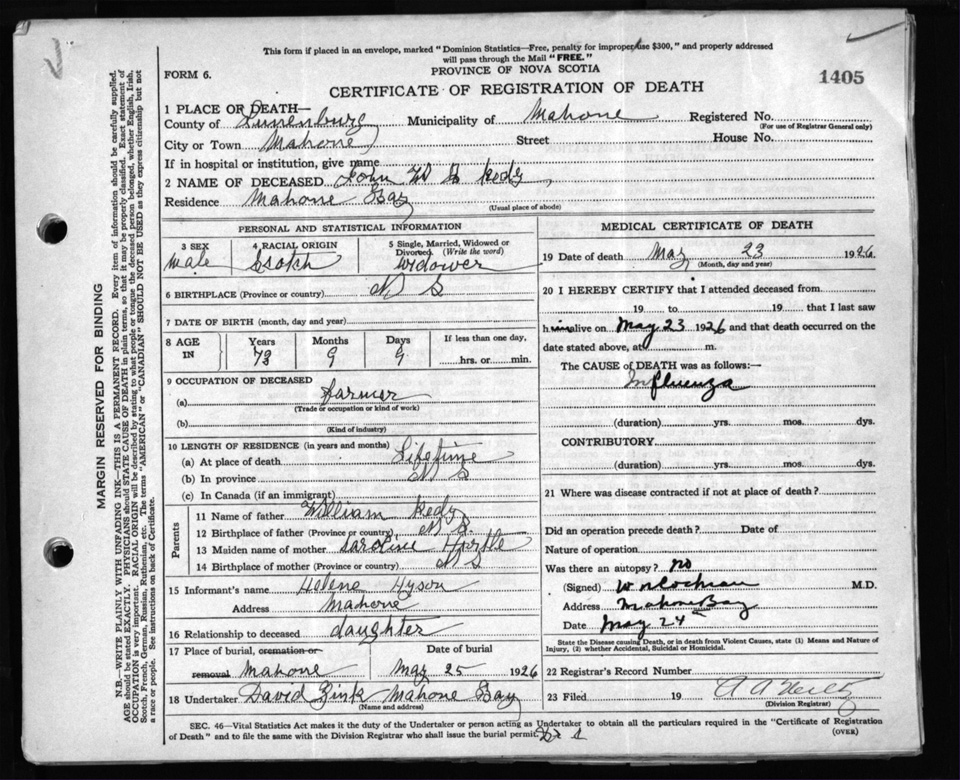 This form if placed in an envelope, marked "Dominion Statistics—Free, penalty for improper use $300," and properly addressed
will pass through the Mail "FREE."
FORM 6.
PROVINCE OF NOVA SCOTIA
1405
CERTIFICATE OF REGISTRATION OF DEATH
1 PLACE OF DEATH—
County of Lunenburg Municipality of Mahone Registered No.
(For use of Registrar General only)
City or Town Mahone Street House No.
If in hospital or institution, give name
2 NAME OF DECEASED John W Kedy
Residence Mahone Bay
(Usual place of abode)
PERSONAL AND STATISTICAL INFORMATION
3 SEX 4 RACIAL ORIGIN 5 Single, Married, Widowed or Divorced. (Write the word)
Male Scotch Widower
6 BIRTHPLACE (Province or country) N S
7 DATE OF BIRTH (month, day and year)
8 AGE IN Years Months Days If less than one day,
73 9 9 hrs. or min.
9 OCCUPATION OF DECEASED
(a) farmer
(Trade or occupation or kind of work)
(b)
(Kind of industry)
10 LENGTH OF RESIDENCE (in years and months)
(a) At place of death Lifetime
(b) In province N S
(c) In Canada (if an immigrant)
Parents
11 Name of father William Kedy
12 Birthplace of father (Province or country) N S.
13 Maiden name of mother Caroline
14 Birthplace of mother (Province or country) N S
15 Informant's name Helene Hyson
Address Mahone
16 Relationship to deceased daughter
17 Place of burial, cremation or removal Date of burial
Mahone May 25 1926
18 Undertaker David Zink Mahone Bay
(Name and address)
MEDICAL CERTIFICATE OF DEATH
19 Date of death May 23 1926
(Month, day and year)
20 I HEREBY CERTIFY that I attended deceased from
19 to 19 that I last saw
him alive on May 23 1926 and that death occurred on the
date stated above, at m.
The CAUSE of DEATH was as follows:—
Influenza
(duration) yrs. mos. dys.
CONTRIBUTORY
(duration) yrs. mos. dys.
21 Where was disease contracted if not at place of death?
Did an operation precede death? Date of
Nature of operation
Was there an autopsy? no
(Signed) W N Cochran M.D.
Address Mahone Bay
Date May 24
State the Disease causing Death, or in death from Violent Causes, state (1) Means and Nature of
Injury, (2) whether Accidental, Suicidal or Homicidal.
22 Registrar's Record Number
23 Filed 19
(Division Registrar)
SEC. 46—Vital Statistics Act makes it the duty of the Undertaker or person acting as Undertaker to obtain all the particulars required in the "Certificate of Registration
of Death" and to file the same with the Division Registrar who shall issue the burial permit.
(OVER)
MARGIN RESERVED FOR BINDING
N.B.—WRITE PLAINLY WITH UNFADING INK—THIS IS A PERMANENT RECORD. Every item of information should be carefully supplied.
AGE should be stated EXACTLY. PHYSICIANS should STATE CAUSE OF DEATH in plain terms, so that it may be properly classified. Exact statement of
OCCUPATION is very important. RACIAL ORIGIN will be described by stating to what people or tongue the deceased person belonged, whether English, Irish,
Scotch, French, German, Russian, Ruthenian, etc. The terms "AMERICAN" or "CANADIAN" SHOULD NOT BE USED as they express citizenship but not
a race or people. See instructions on back of Certificate.